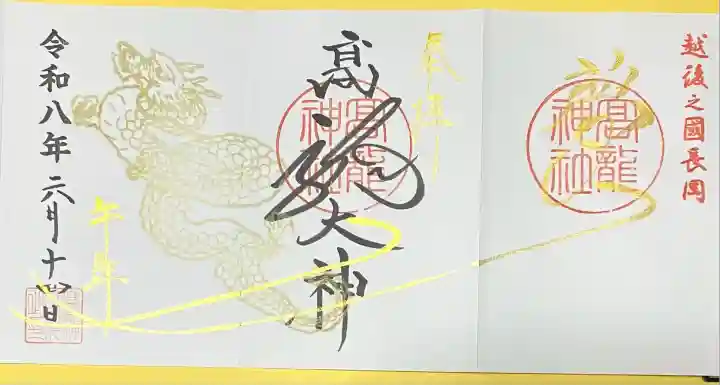 越後之國長岡
高龍神社
奉拝
高龍大神
高龍神社
午年
令和八年六月十四日